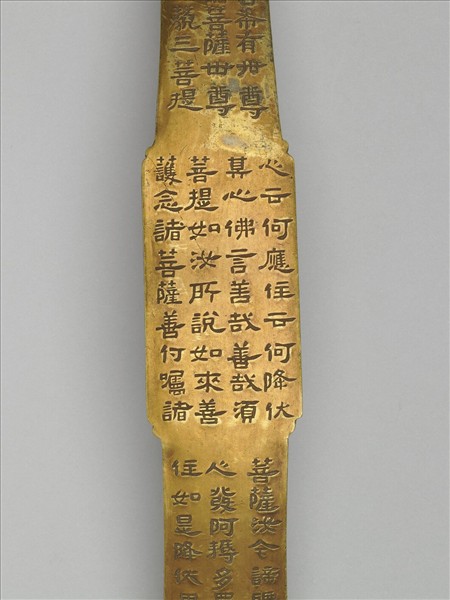 希有世尊
菩薩世尊
藐三菩提
心云何應住云何降伏
其心佛言善哉善哉須
菩提如汝所說如來善
護念諸菩薩善付囑諸
菩薩汝今諦
人發阿耨多
住如是降伏